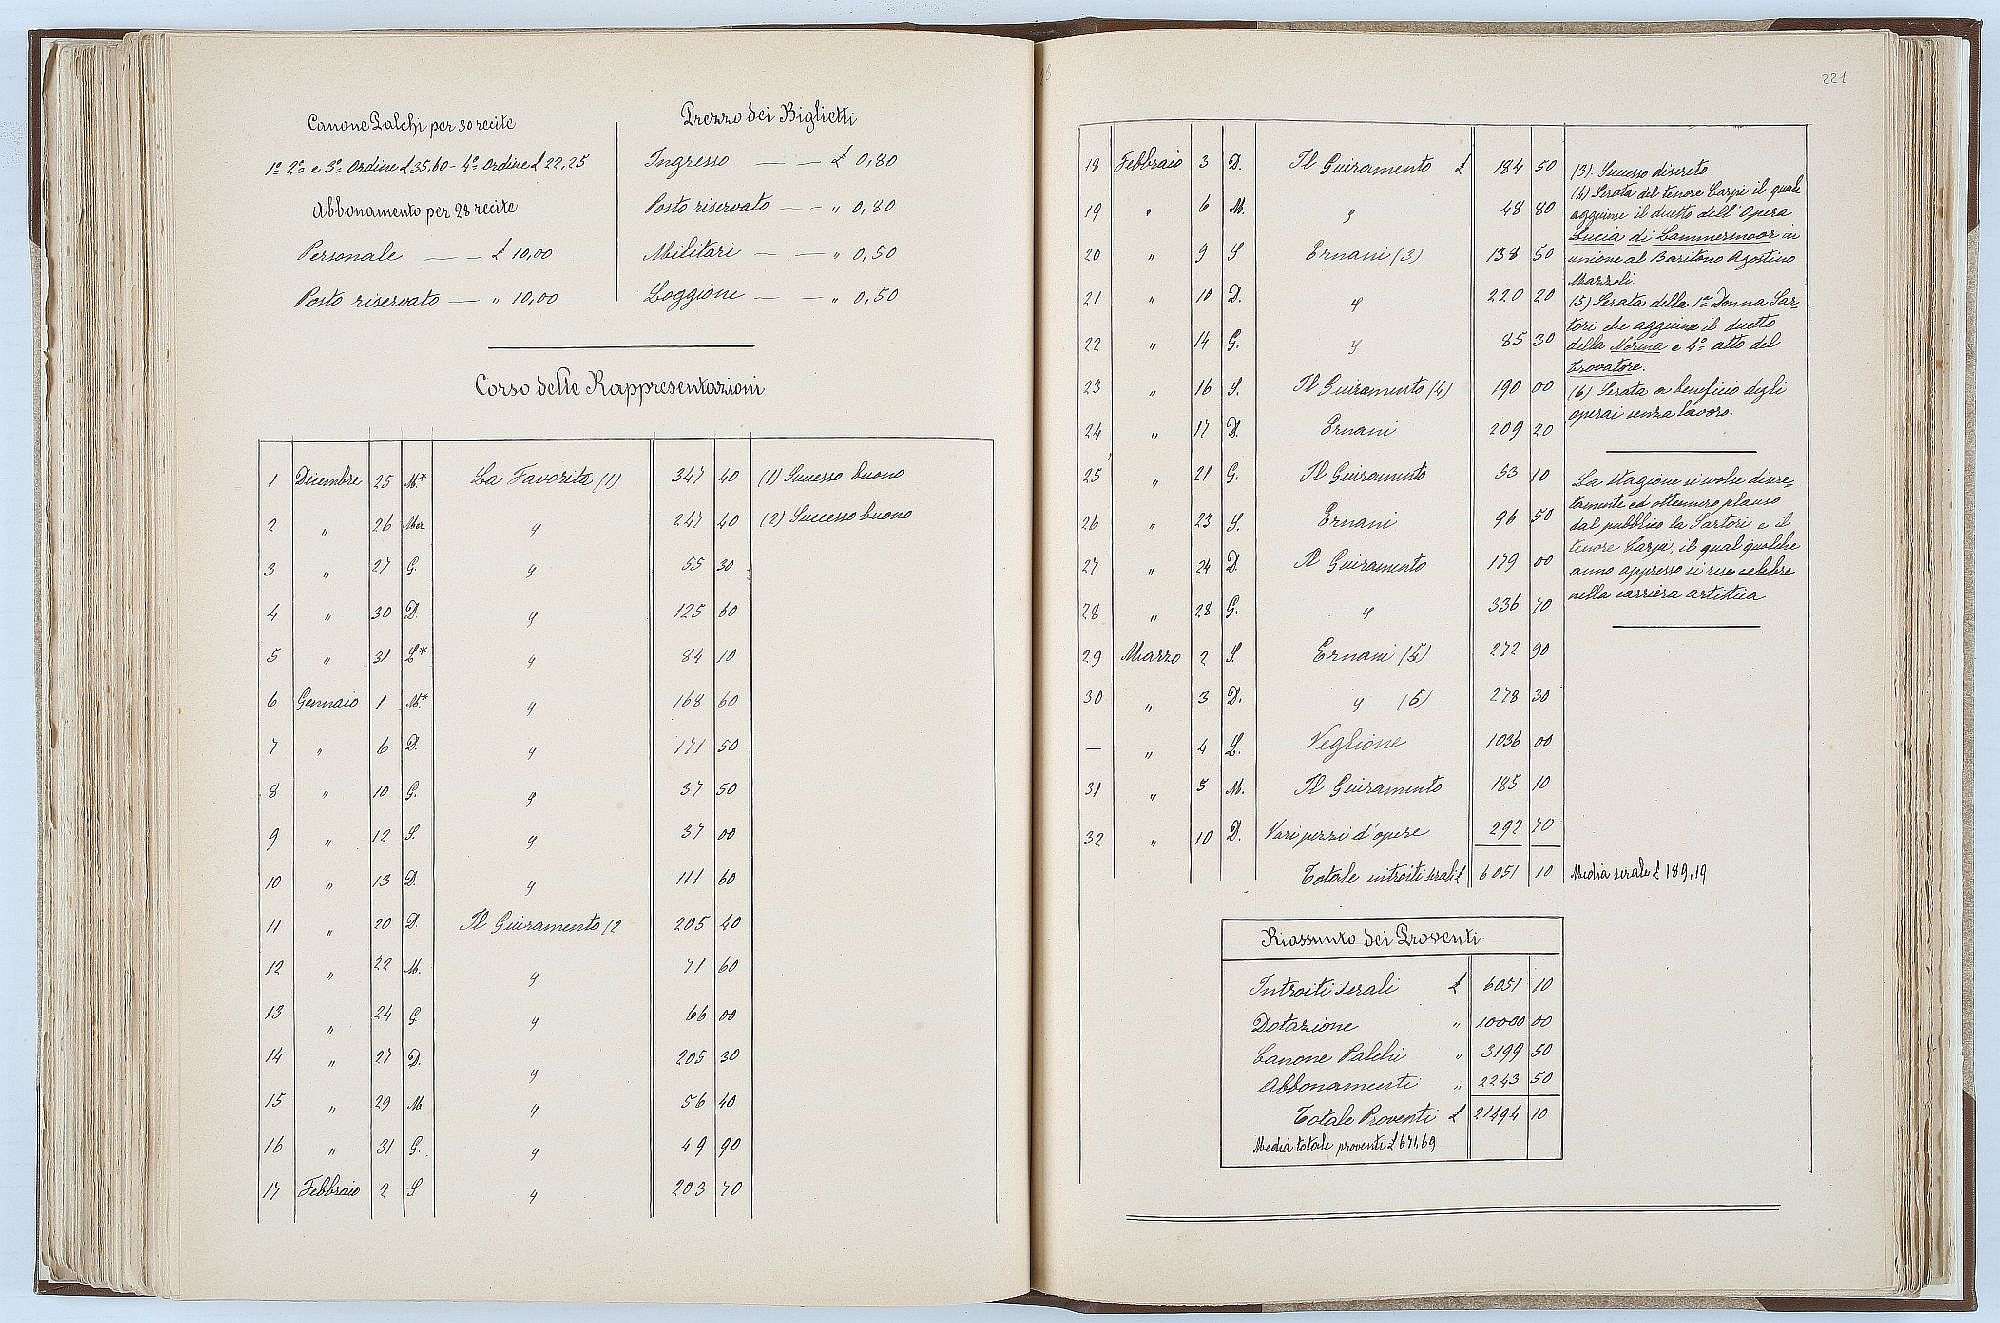 Canone Palchi per 30 recite
1º 2º e 3º Ordine £ 35,60 - 4º Ordine £ 22,25
Abbonamento per 28 recite
Personale — — £ 10,00
Posto riservato — „ 10,00
Prezzo dei Biglietti
Ingresso — — £ 0,80
Posto riservato — — „ 0,80
Militari — — „ 0,50
Loggione — — „ 0,50
Corso delle Rappresentazioni
1 Dicembre 25 M* La Favorita (1) 347 40 (1) Successo buono
2 „ 26 Mer „ 247 40 (2) Successo buono
3 „ 27 G. „ 55 30
4 „ 30 D. „ 125 60
5 „ 31 L* „ 84 10
6 Gennaio 1 M* „ 168 60
7 „ 6 D. „ 171 50
8 „ 10 G. „ 37 50
9 „ 12 S. „ 37 00
10 „ 13 D. „ 111 60
11 „ 20 D. Il Guiramento (2 205 40
12 „ 22 M. „ 71 60
13 „ 24 G „ 66 00
14 „ 27 D. „ 205 30
15 „ 29 M „ 56 40
16 „ 31 G. „ 49 90
17 Febbraio 2 S „ 203 70
221
18 Febbraio 3 D. Il Guiramento £ 184 50
19 „ 6 M. „ 48 80
20 „ 9 S Ernani (3) 138 50
21 „ 10 D. „ 220 20
22 „ 14 G. „ 85 30
23 „ 16 S. Il Guiramento (4) 190 00
24 „ 17 D. Ernani 209 20
25 „ 21 G. Il Guiramento 53 10
26 „ 23 S. Ernani 96 50
27 „ 24 D Il Guiramento 179 00
28 „ 28 G. „ 336 70
29 Marzo 2 S. Ernani (5) 272 90
30 „ 3 D. „ (6) 278 30
— „ 4 L. Veglione 1036 00
31 „ 5 M. Il Guiramento 185 10
32 „ 10 D. Vari pezzi d'opere 292 70
Totale introiti serali £ 6051 10 Media serale £ 189,19
(3) Successo discreto
(4) Serata del tenore Carpi il quale
aggiunse il duetto dell'Opera
Lucia di Lammermoor in
unione al Baritono Agostino
Mazzoli.
(5) Serata della 1ª Donna Sar-
tori che aggiunse il duetto
della Norma e 4º atto del
Trovatore.
(6) Serata a beneficio degli
operai senza lavoro.
La stagione si svolse discre-
tamente ed ottennero plauso
dal pubblico la Sartori e il
tenore Carpi, il qual qualche
anno appresso si rese celebre
nella carriera artistica
Riassunto dei Proventi
Introiti serali £ 6051 10
Dotazione „ 10000 00
Canone Palchi „ 3199 50
Abbonamenti „ 2243 50
Totale Proventi £ 21494 10
Media totale proventi £ 671,69